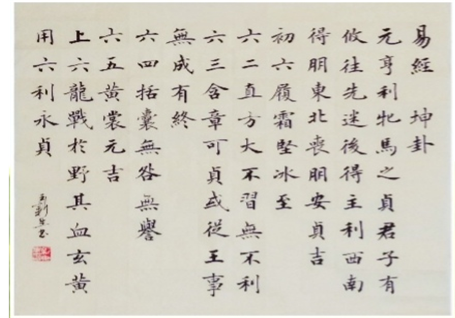 易經 坤卦
元亨利牝馬之貞君子有
攸往先迷後得主利西南
得朋東北喪朋安貞吉
初六履霜堅冰至
六二直方大不習無不利
六三含章可貞或從王事
無成有終
六四括囊無咎無譽
六五黃裳元吉
上六龍戰於野其血玄黃
用六利永貞